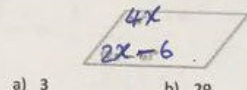 4x
2x-6
a) 3 b) 29